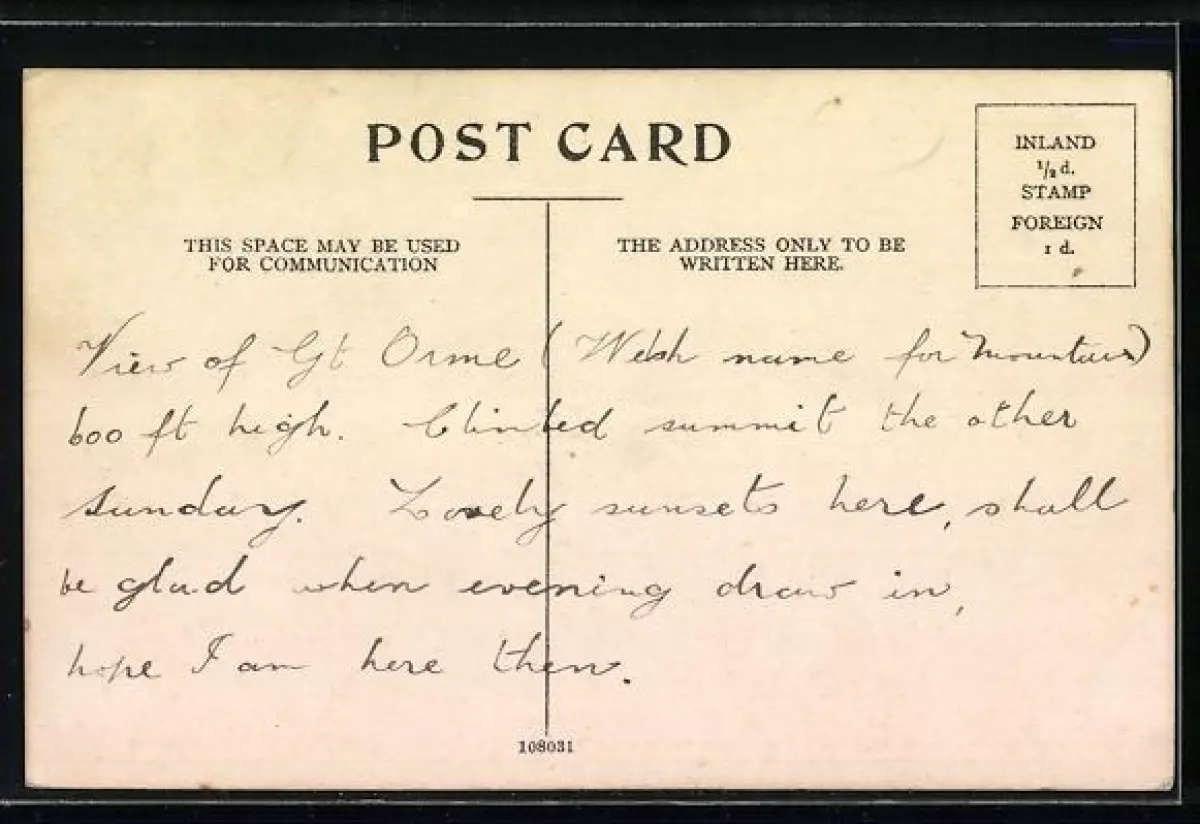 POST CARD
INLAND
½ d.
STAMP
FOREIGN
1 d.
THIS SPACE MAY BE USED
FOR COMMUNICATION
THE ADDRESS ONLY TO BE
WRITTEN HERE.
View of Gt Orme (Welsh name for Mountain)
600 ft high. Climbed summit the other
sunday. Lovely sunsets here, shall
be glad when evening draw in,
hope I am here then.
108031